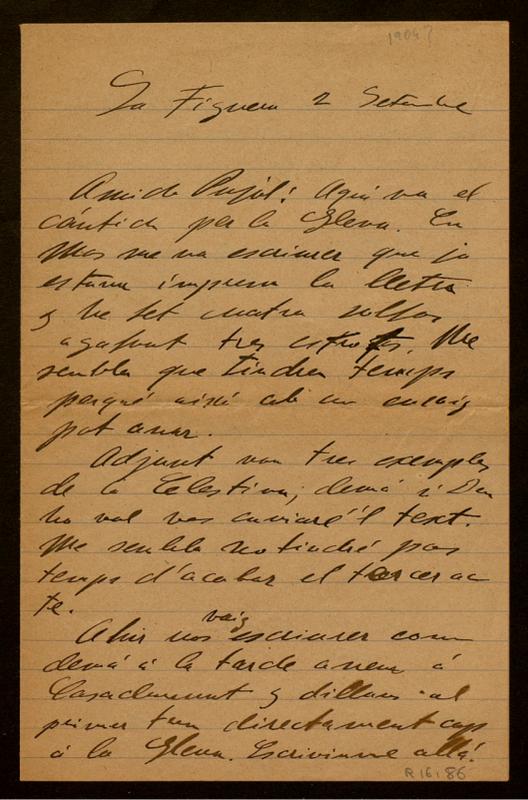 1904?
La Figuera 2 Setembre
Amich Pujol: Aquí va el
cántich per la Gleva. En
Mas me va escriurer que ja
estava impresa la lletra
y he fet cuatra solfas
agafant tres estrofes. Me
sembla que tindrem temps
perqué aixó ab un ensaig
pot anar.
Adjunt van tres exemples
de la Celestina; demá si Deu
ho vol vos enviaré'l text.
Me sembla no tindré pas
temps d'acabar el tercer ac
te.
Ahir vos vaig escriurer com
demá á la tarde anem á
Casademunt y dilluns al
primer tren directament cap
á la Gleva. Escrivinme allá.
R 161 86